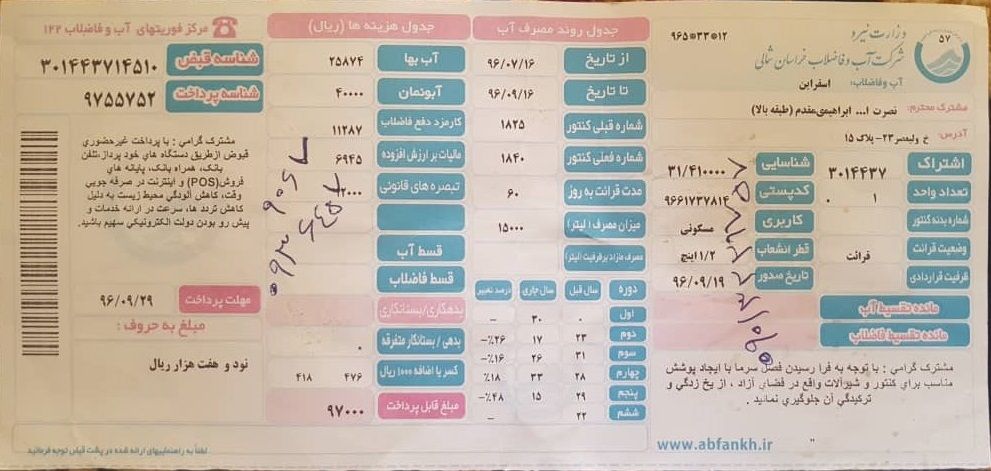 ۵۷
وزارت نیرو
شرکت آب و فاضلاب خراسان شمالی
آب وفاضلاب: اسفراین
۹۶۵*۳۳*۱۲
مشترک محترم: نصرت ا... ابراهیمی‌مقدم (طبقه بالا)
آدرس: خ ولیعصر۲۳-پلاک ۱۵
اشتراک ۳۰۱۴۴۳۷
شناسایی ۳۱/۴۱۰۰۰۰
تعداد واحد ۱ ۰
کدپستی ۹۶۶۱۷۳۷۸۱۴
شماره بدنه کنتور
کاربری مسکونی
وضعیت قرائت قرائت
قطر انشعاب ۱/۲ اینچ
ظرفیت قراردادی
تاریخ صدور ۹۶/۰۹/۱۹
مانده تقسیط آب
مانده تقسیط فاضلاب
مشترک گرامی : با توجه به فرا رسیدن فصل سرما با ایجاد پوشش
مناسب برای کنتور و شیرآلات واقع در فضای آزاد ، از یخ زدگی و
ترکیدگی آن جلوگیری نمائید .
www.abfankh.ir
جدول روند مصرف آب
از تاریخ ۹۶/۰۷/۱۶
تا تاریخ ۹۶/۰۹/۱۶
شماره قبلی کنتور ۱۸۲۵
شماره فعلی کنتور ۱۸۴۰
مدت قرائت به روز ۶۰
میزان مصرف (لیتر) ۱۵۰۰۰
مصرف مازاد برظرفیت (لیتر)
دوره سال قبل سال جاری درصد تغییر
اول ۰ ۳۰ -
دوم ۲۳ ۱۷ ٪۲۶-
سوم ۳۱ ۲۶ ٪۱۶-
چهارم ۲۸ ۳۳ ٪۱۸
پنجم ۲۹ ۱۵ ٪۴۸-
ششم ۲۲ -
جدول هزینه ها (ریال)
آب بها ۲۵۸۷۴
آبونمان ۴۰۰۰۰
کارمزد دفع فاضلاب ۱۱۲۸۷
مالیات بر ارزش افزوده ۶۹۴۵
تبصره های قانونی
قسط آب
قسط فاضلاب
بدهکاری/بستانکاری
بدهی / بستانکار متفرقه ۰
کسر یا اضافه ۱۰۰۰ ریال ۴۷۶ ۴۱۸
مبلغ قابل پرداخت ۹۷۰۰۰
مرکز فوریتهای آب و فاضلاب ۱۲۲
شناسه قبض ۳۰۱۴۴۳۷۱۴۵۱۰
شناسه پرداخت ۹۷۵۵۷۵۲
مشترک گرامی : با پرداخت غیرحضوری
قبوض ازطریق دستگاه های خود پرداز،تلفن
بانک، همراه بانک، پایانه های
فروش(POS) و اینترنت در صرفه جویی
وقت، کاهش آلودگی محیط زیست به دلیل
کاهش تردد ها، سرعت در ارائه خدمات و
پیش رو بودن دولت الکترونیکی سهیم باشید.
مهلت پرداخت ۹۶/۰۹/۲۹
مبلغ به حروف :
نود و هفت هزار ریال
لطفا به راهنماییهای ارائه شده در پشت قبض توجه فرمائید